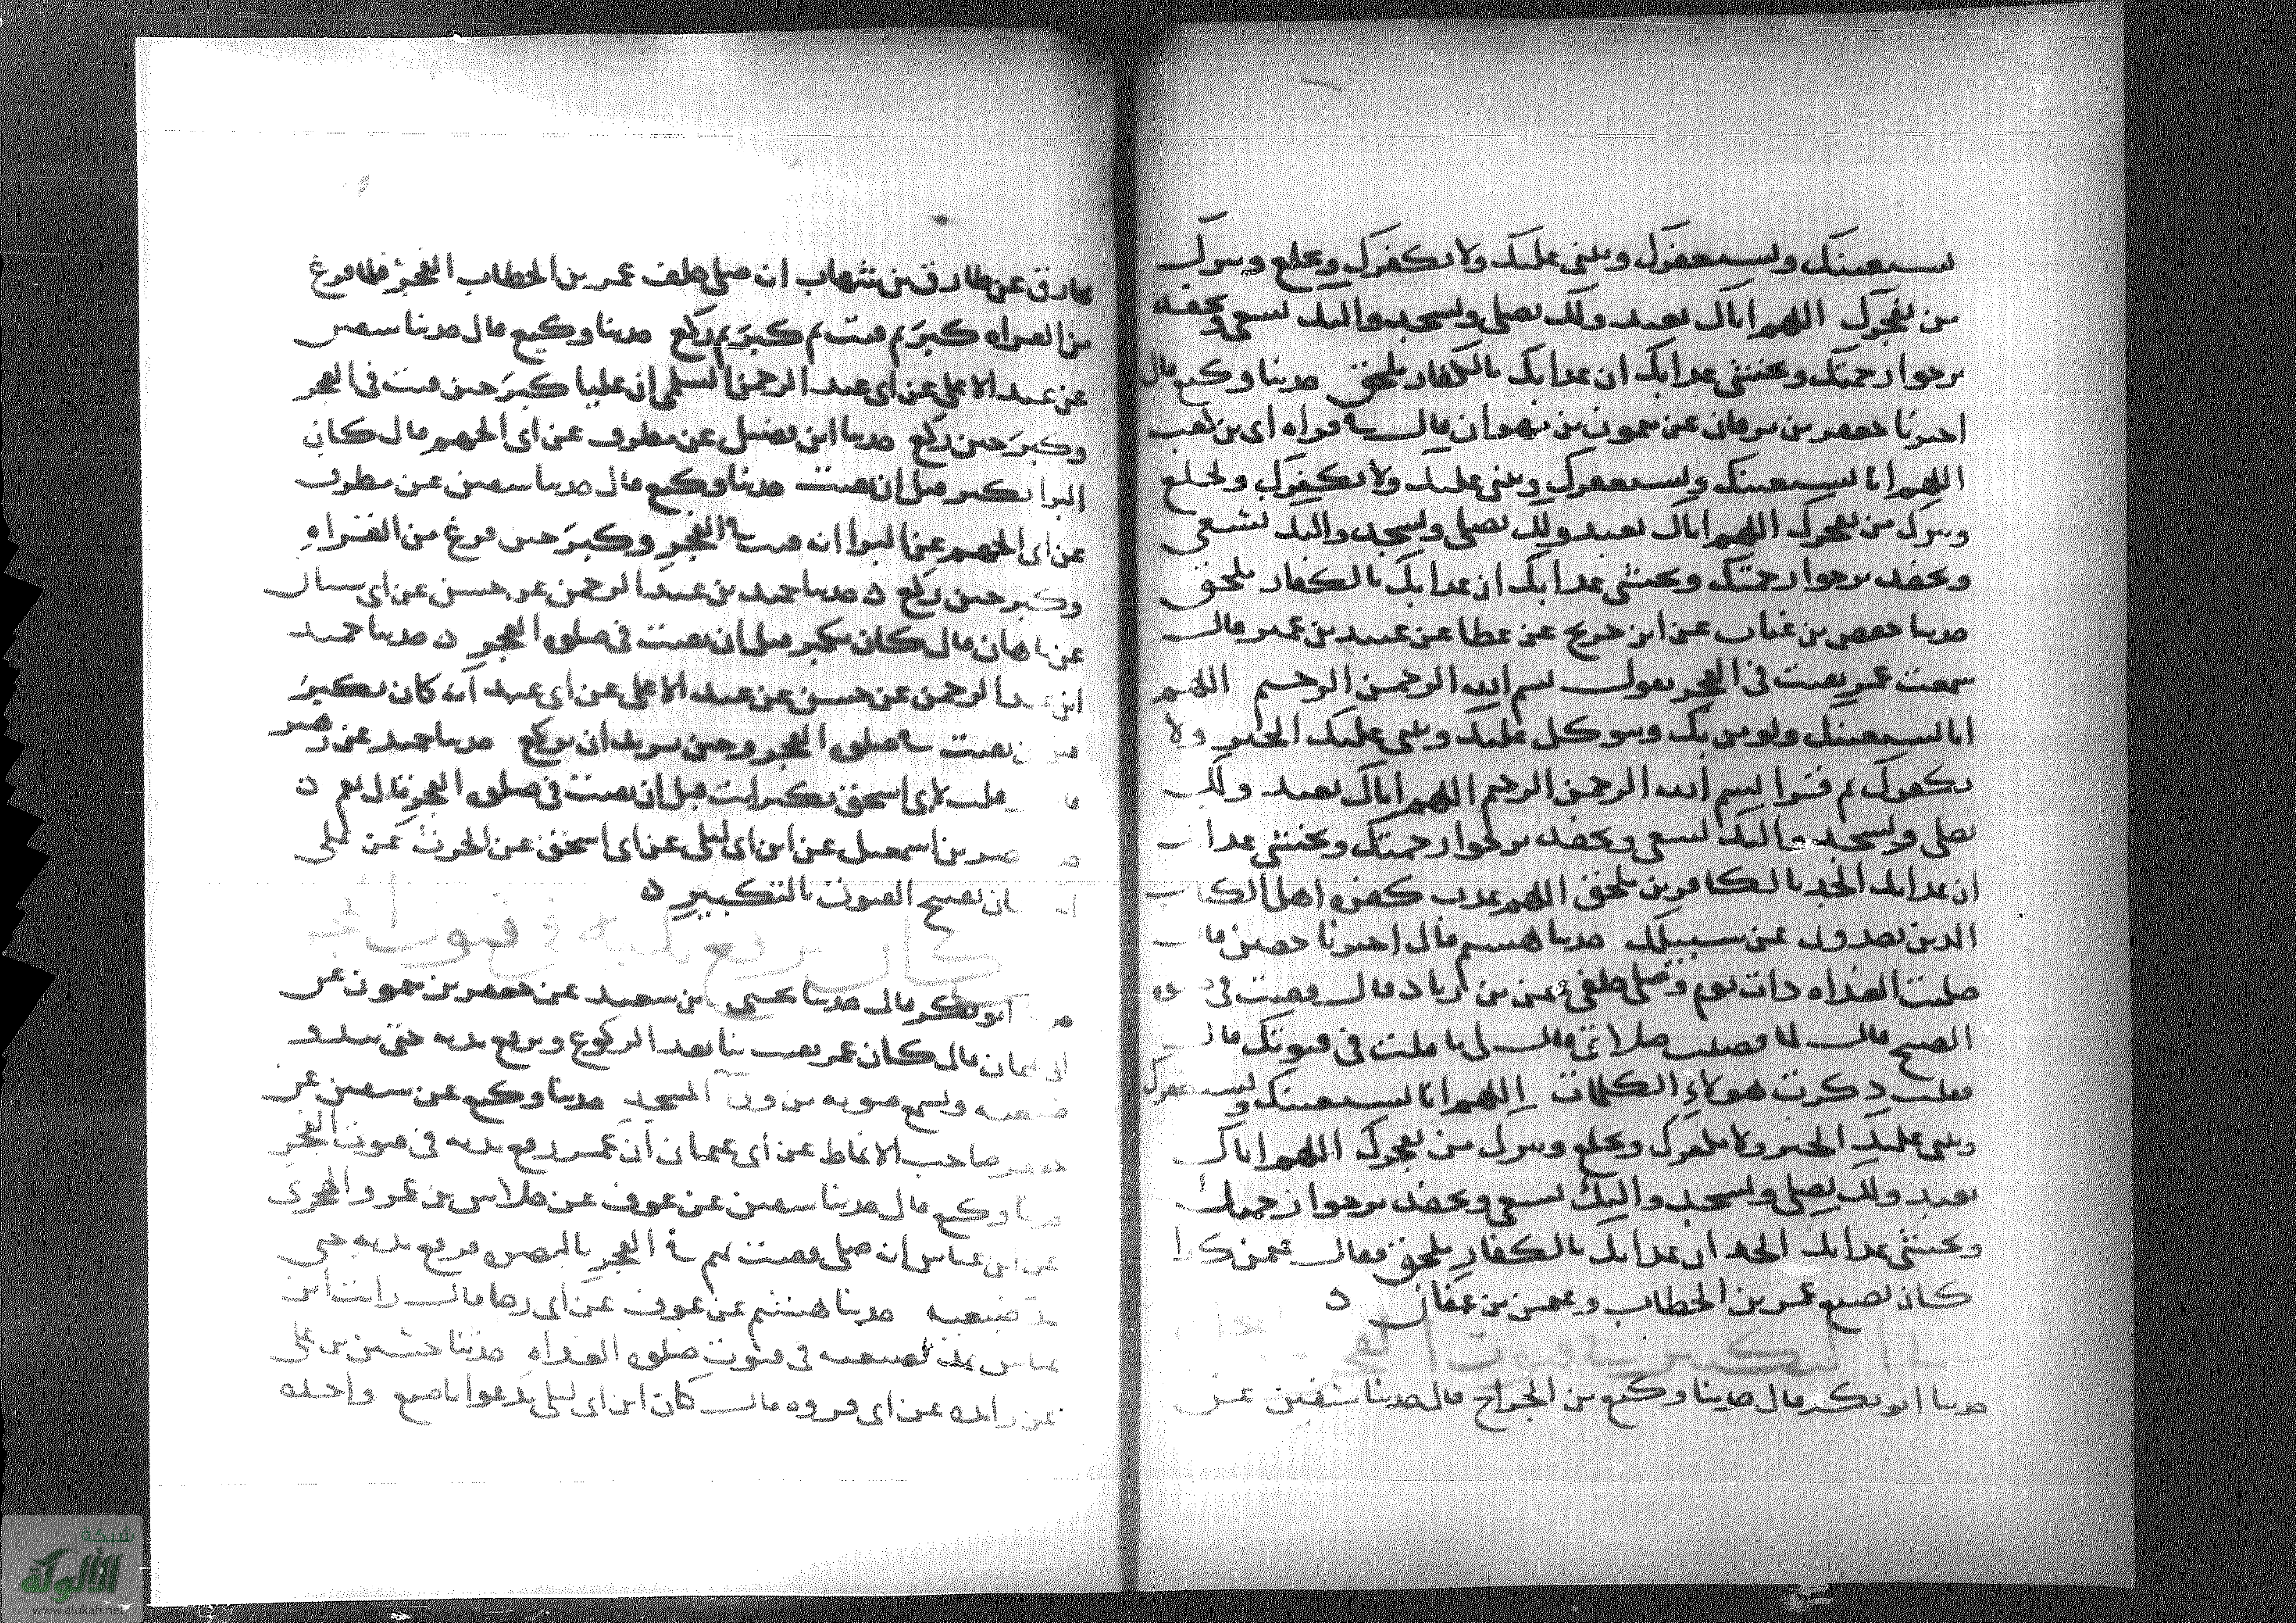 نستعينك ونستغفرك ونثني عليك ولا نكفرك ونخلع ونترك
من يفجرك اللهم اياك نعبد ولك نصلي ونسجد واليك نسعى ونحفد
نرجوا رحمتك ونخشى عذابك ان عذابك بالكفار ملحق حدثنا وكيع قال
اخبرنا جعفر بن برقان عن ميمون بن مهران قال في قراه ابي بن كعب
اللهم انا نستعينك ونستغفرك ونثني عليك ولا نكفرك ونخلع
ونترك من يفجرك اللهم اياك نعبد ولك نصلي ونسجد واليك نسعى
ونحفد نرجوا رحمتك ونخشى عذابك ان عذابك بالكفار ملحق
حدثنا حفص بن غياث عن ابن جريج عن عطا عن عبيد بن عمير قال
سمعت عمر يقنت في الفجر يقول بسم الله الرحمن الرحيم اللهم
انا نستعينك ونومن بك ونتوكل عليك ونثني عليك الخير ولا
نكفرك ثم قرا بسم الله الرحمن الرحيم اللهم اياك نعبد ولك
نصلي ونسجد واليك نسعى ونحفد نرجوا رحمتك ونخشى عذابك
ان عذابك الجد بالكافرين ملحق اللهم عذب كفره اهل الكتاب
الذين يصدون عن سبيلك حدثنا هشيم قال اخبرنا حصين قال
صليت الغداه ذات يوم وصلى خلفي عثمن بن زياد قال فقنت في
الصبح قال لما قضيت صلاتي قال لي ما قلت في قنوتك قال
فقلت ذكرت هولاء الكلمات اللهم انا نستعينك ونستغفرك
ونثني عليك الخير ولا نكفرك ونخلع ونترك من يفجرك اللهم اياك
نعبد ولك نصلي ونسجد واليك نسعى ونحفد نرجوا رحمتك
ونخشى عذابك الجد ان عذابك بالكفار ملحق فقال عثمن كذا
كان يصنع عمر بن الخطاب وعثمن بن عفان ه
في التكبير في قنوت الفجر
حدثنا ابو بكر قال حدثنا وكيع بن الجراح قال حدثنا سفين عن
مخارق عن طارق بن شهاب انه صلى خلف عمر بن الخطاب الفجر فلما فرغ
من القراه كبر ثم قنت ثم كبر ثم ركع حدثنا وكيع قال حدثنا سفين
عن عبد الاعلى عن ابي عبد الرحمن السلمي ان عليا كبر حين قنت في الفجر
وكبر حين ركع حدثنا ابن فضيل عن مطرف عن ابي الجهم قال كان
البرا يكبر قبل ان يقنت حدثنا وكيع قال حدثنا سفين عن مطرف
عن ابي الجهم عن البرا انه قنت في الفجر وكبر حين فرغ من القراه
وكبر حين ركع ه حدثنا حميد بن عبد الرحمن عن حسن عن ابي سنان
عن ماهان قال كان يكبر قبل ان يقنت في صلوه الفجر ه حدثنا حميد
ابن عبد الرحمن عن حسن عن عبد الاعلى عن ابي عبد انه كان يكبر
يقنت في صلوه الفجر وحين يريد ان يركع حدثنا حميد عن زهير
قلت لابي اسحق تكبر انت قبل ان تقنت في صلوه الفجر قال نعم ه
بن اسمعيل عن ابن ابي ليلى عن ابي اسحق عن الحرث عن علي
كان يفتتح القنوت بالتكبير ه
ابو بكر قال حدثنا يحيى بن سعيد عن جعفر بن ميمون عن
ابي عثمان قال كان عمر يقنت بنا بعد الركوع ويرفع يديه حتى يبدو
ضبعيه ويسمع صوته من ورا المسجد حدثنا وكيع عن سفين عن
جعفر صاحب الانماط عن ابي عثمان ان عمر رفع يديه في قنوت الفجر
حدثنا وكيع قال حدثنا سفين عن عوف عن خلاس بن عمرو الهجري
عن ابن عباس انه صلى فقنت بهم في الفجر بالبصره فرفع يديه حتى
مد ضبعيه حدثنا هشيم عن عوف عن ابي رجا قال رايت ابن
عباس يمد بضبعيه في قنوت صلوه الغداه حدثنا حسين بن علي
عن زايده عن ابي فروه قال كان ابن ابي ليلى يدعوا باصبع واحده
شبكة
الألوكة
www.alukah.net